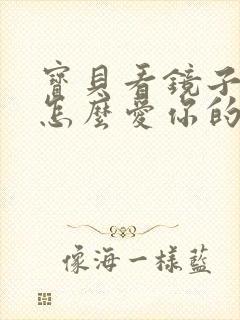 寶貝看鏡子
怎麼愛你的
像海一樣藍